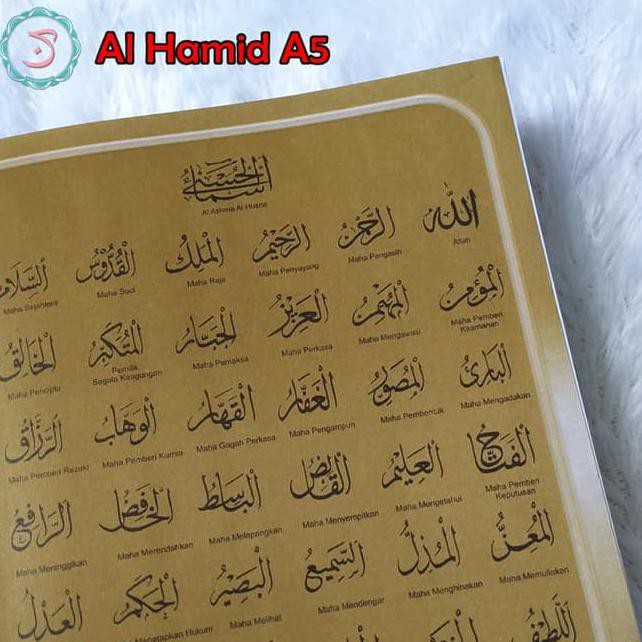 ن
Al Hamid A5
أسماء الحسنى
Al Ashma Al Husna
الله الرحمن الرحيم الملك القدوس السلام
Allah Maha Pengasih Maha Penyayang Maha Raja Maha Suci Maha Sejahtera
المؤمن المهيمن العزيز الجبار المتكبر الخالق
Maha Pemberi Keamanan Maha Mengawasi Maha Perkasa Maha Pemaksa Pemilik Segala Keagungan Maha Pencipta
البارئ المصور الغفار القهار الوهاب الرزاق
Maha Mengadakan Maha Pembentuk Maha Pengampun Maha Gagah Perkasa Maha Pemberi Kurnia Maha Pemberi Rezeki
الفتاح العليم القابض الباسط الخافض الرافع
Maha Pemberi Keputusan Maha Mengetahui Maha Menyempitkan Maha Melapangkan Maha Merendahkan Maha Meninggikan
المعز المذل السميع البصير الحكم العدل
Maha Memuliakan Maha Menghinakan Maha Mendengar Maha Melihat Menetapkan Hukum
اللطيف